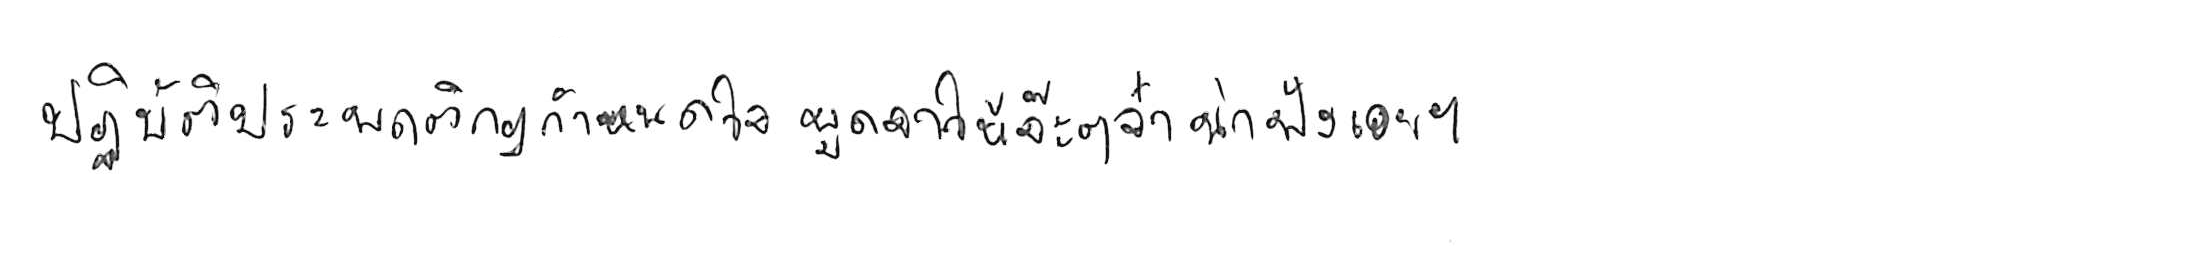 ปฏิบัติประพฤติกฎกำหนดใจ พูดจาให้จ๊ะๆจ๋า น่าฟังเอยฯ